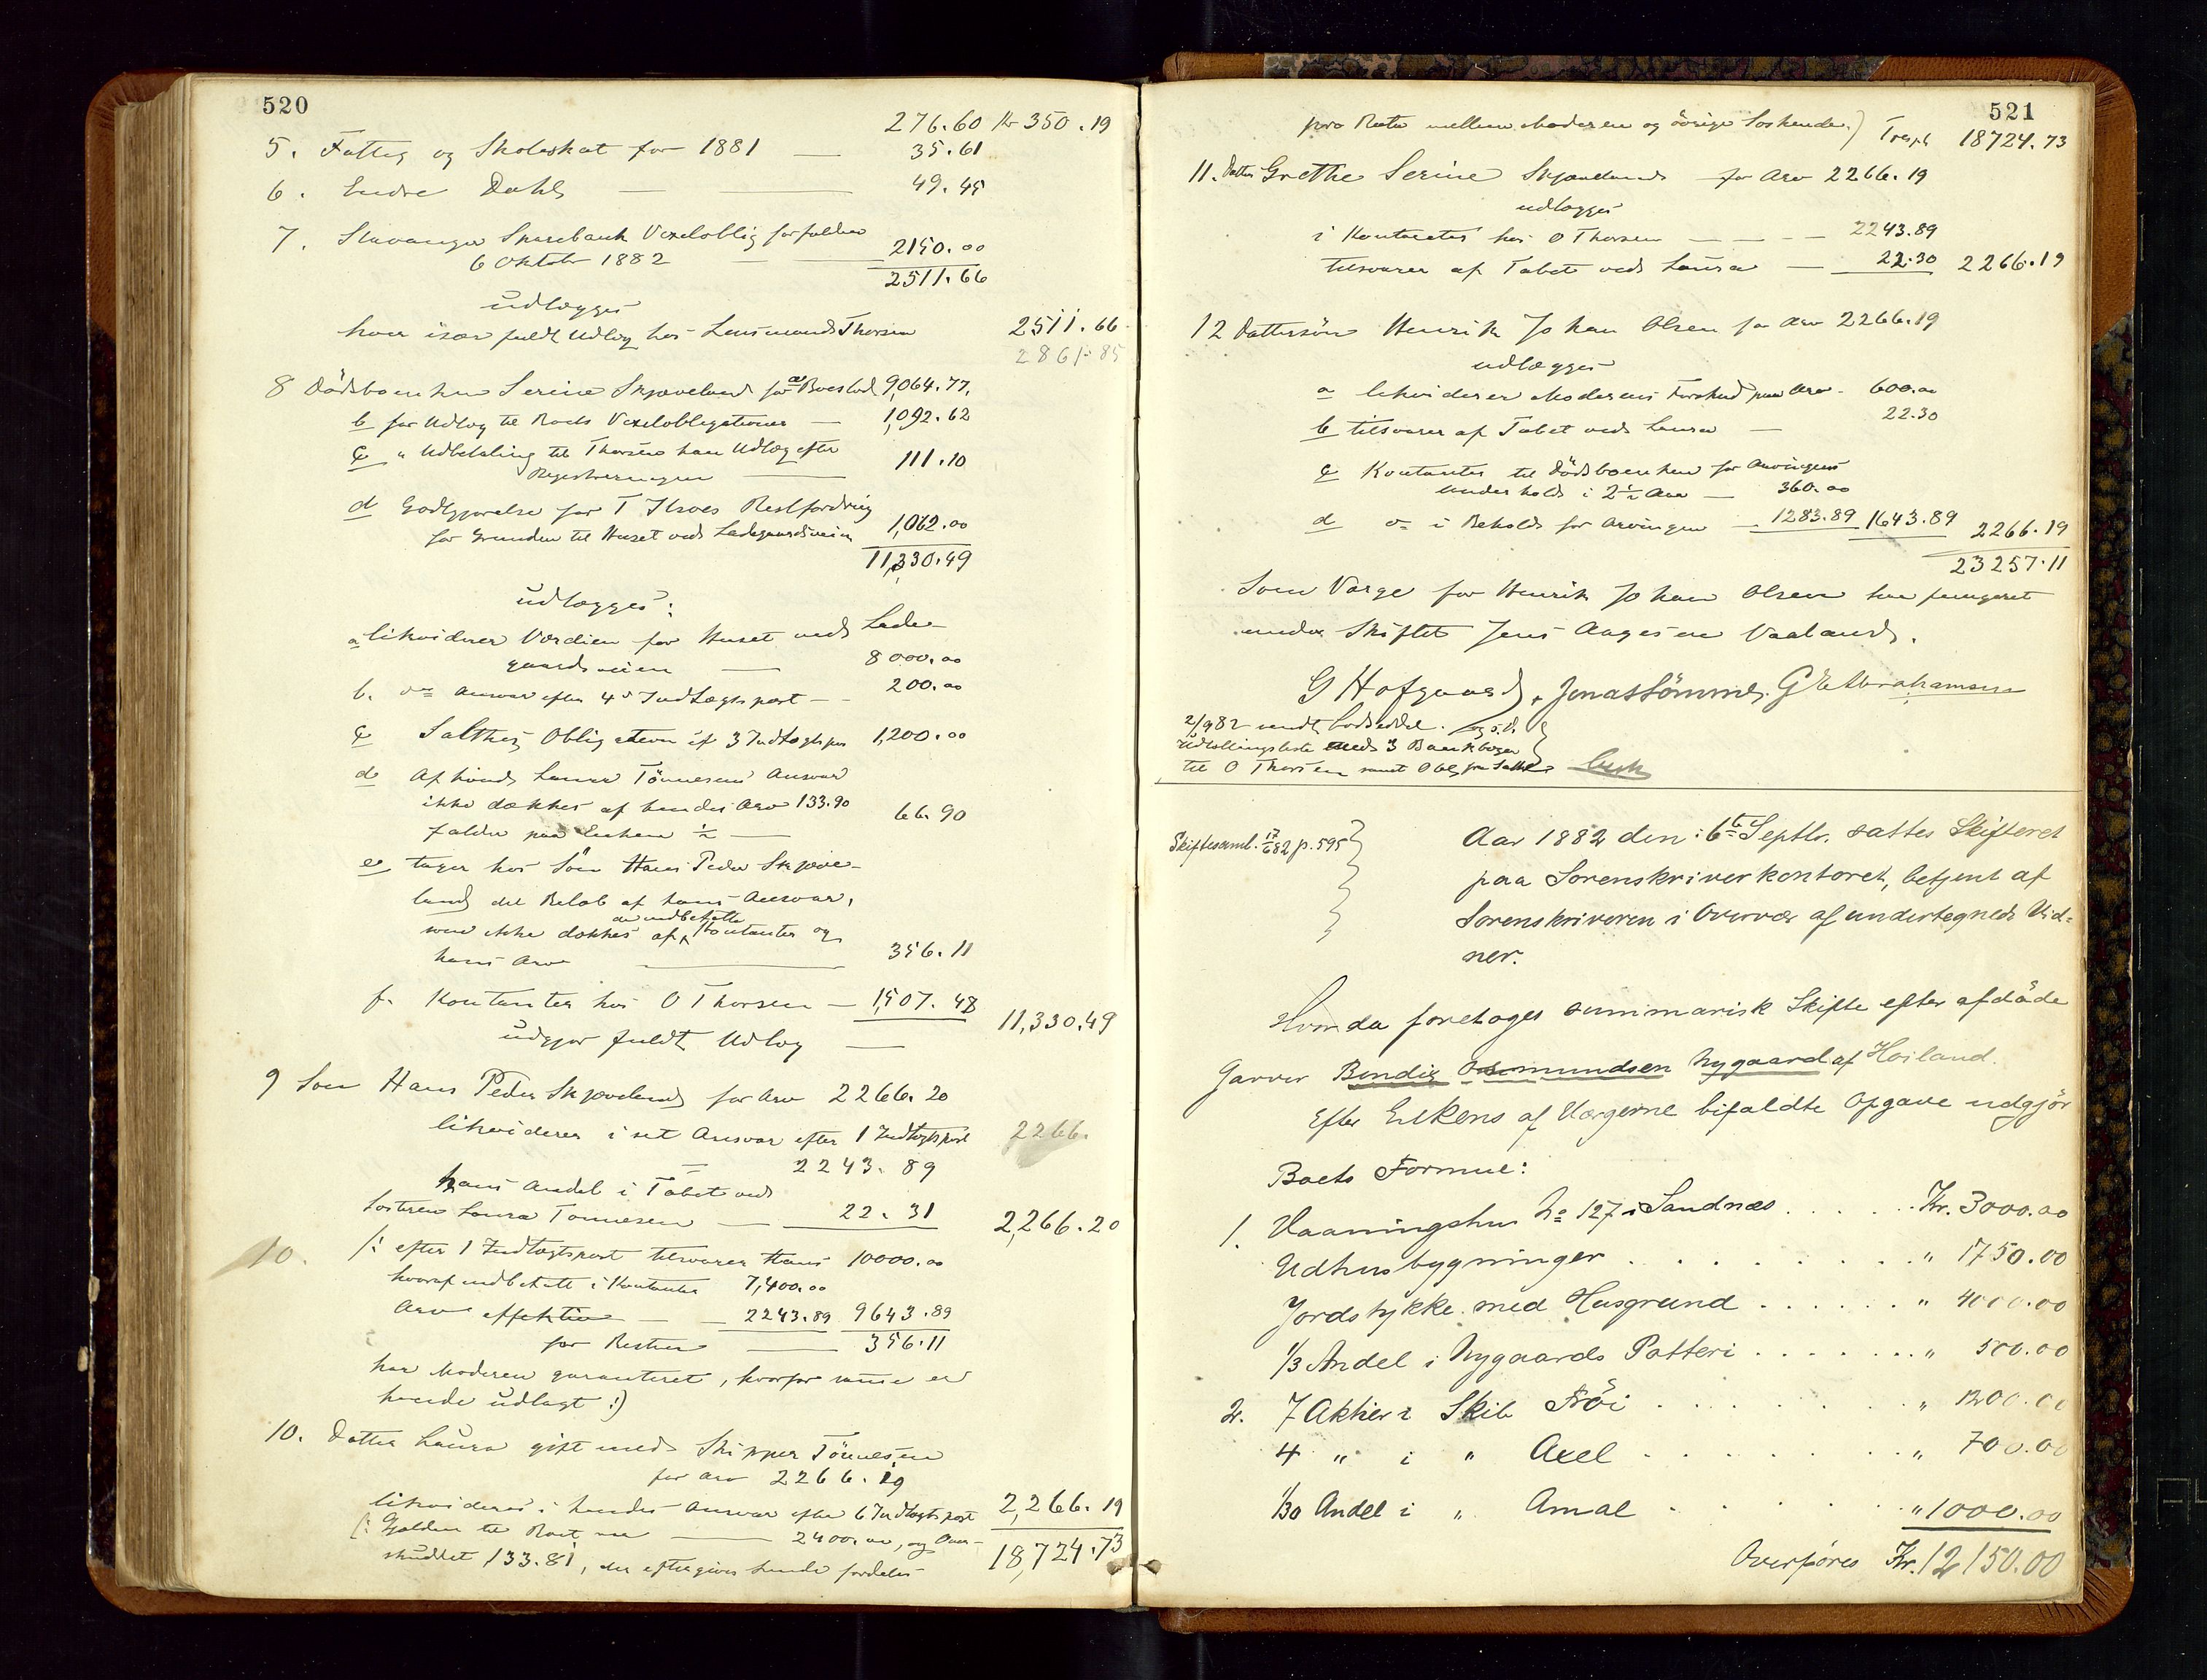 520
276.60 Kr 350.19
5. Fattig og Skoleskat for 1881 — 35.61
6. Endre Dahls — 49.45
7. Stavanger Sparebank Vexeloblig forfalden
6 Oktober 1882 — 2150.00
2511.66
udlægges
hver især fuldt Udlæg hos Lensmand Thorsen 2511.66
2861.85
8 Dödsboenken Serine Skjæveland for a Boeslod 9,064.77
b for Udlæg til Boets Vexelobligationer — 1,092.62
c " Udbetaling til Thorsens han Udlæg efter
Registreringen — 111.10
d Godtgjørelse for T Restfordring
for Grunden til Huset ved Ladegaardsveien 1,062.00
11,330.49
udlægges:
a likviderer Værdien for Huset ved Lade-
gaardsveien — 8000.00
b. do Ansvar efter 4de Indtægtspost — 200.00
c Salthes Obligation if 3 Indtægtspost 1,200.00
d Af hvad Laura Tönnesens Ansvar
ikke dækkes af hendes Arv 133.90
falder paa Enken ½ — 66.90
e tager hos Sön Hans Peder Skjæve-
land det Belöb af hans Ansvar,
som ikke dækkes af de indbetalte Kontanter og
hans Arv — 356.11
f. Kontanter hos O Thorsen — 1,507.48
udgjør fuldt Udlæg — 11,330.49
9 Sön Hans Peder Skjæveland for Arv 2266.20
likviderer i sit Ansvar efter 1 Indtægtspost 2266.
2243.89
hans Andel i Tabet ved
Sösteren Laura Tönnesen — 22.31 2,266.20
10. /: efter 1 Indtægtspost tilsvarer Hans 10000.00
hvoraf indbetalt i Kontanter 7,400.00
Arv effektiv — 2243.89 9643.89
for Resten — 356.11
har Moderen garanteret, hvorfor samme er
hende udlagt :)
10. Datter Laura gift med Skipper Tönnesen
for Arv 2266.19
likvideres i hendes Ansvar efter 6 Indtægtspost 2,266.19
(: Gjælden til Boet var — 2400.00, og Over-
skuddet 133.81, der eftergives hende fordeles 18,724.73
521
pro Rata mellem Moderen og övrige Söskende:) Transp 18724.73
11. Datter Grethe Serine Skjæveland for Arv 2266.19
udlægges
i Kontanter hos O Thorsen — 2243.89
tilsvarer af Tabet ved Laura — 22.30 2266.19
12 Dattersön Henrik Johan Olsen for Arv 2266.19
udlægges
a likviderer Moderens Forskud paa Arv - 600.00
b tilsvarer af Tabet ved Laura — 22.30
c Kontanter til Dödsboenken for Arvingens
Underhold i 2½ Aar — 360.00
d do i Behold for Arvingen — 1283.89 1643.89 2266.19
23257.11
Som Værge for Henrik Johan Olsen har fungeret
under Skiftet Jens Aagesen Vaaland.
G Hofgaard. Jonas Sömme. G E Abrahamsen
2/9 82 sendt Lodseddel.
Udlodningsliste med 3 Bankbøger
til O Thorsen samt Oblg fra Salthe
Skiftesaml. 17/6 82 p. 595
Aar 1882 den 6te Septbr. sattes Skifteret
paa Sorenskriverkontoret, betjent af
Sorenskriveren i Overvær af undertegnede Vid=
ner.
Hvorda foretoges summarisk Skifte efter afdöde
Garver Bendix Osmundsen Nygaard af Höiland.
Efter Enkens af Værgerne bifaldte Opgave udgjör
Boets Formue:
1. Vaaningshus No 127 i Sandnæs . . . . Kr. 3000.00
Udhusbygninger . . . . . " 1750.00
Jordstykke med Husgrund . . . . . " 4000.00
1/3 Andel i Nygaards Potteri . . . . . " 500.00
2. 7 Aktier i Skib Fröi . . . . . " 1200.00
4 " i " Axel . . . . . " 700.00
1/30 Andel i " Amal . . . . . " 1000.00
Overföres Kr. 12150.00